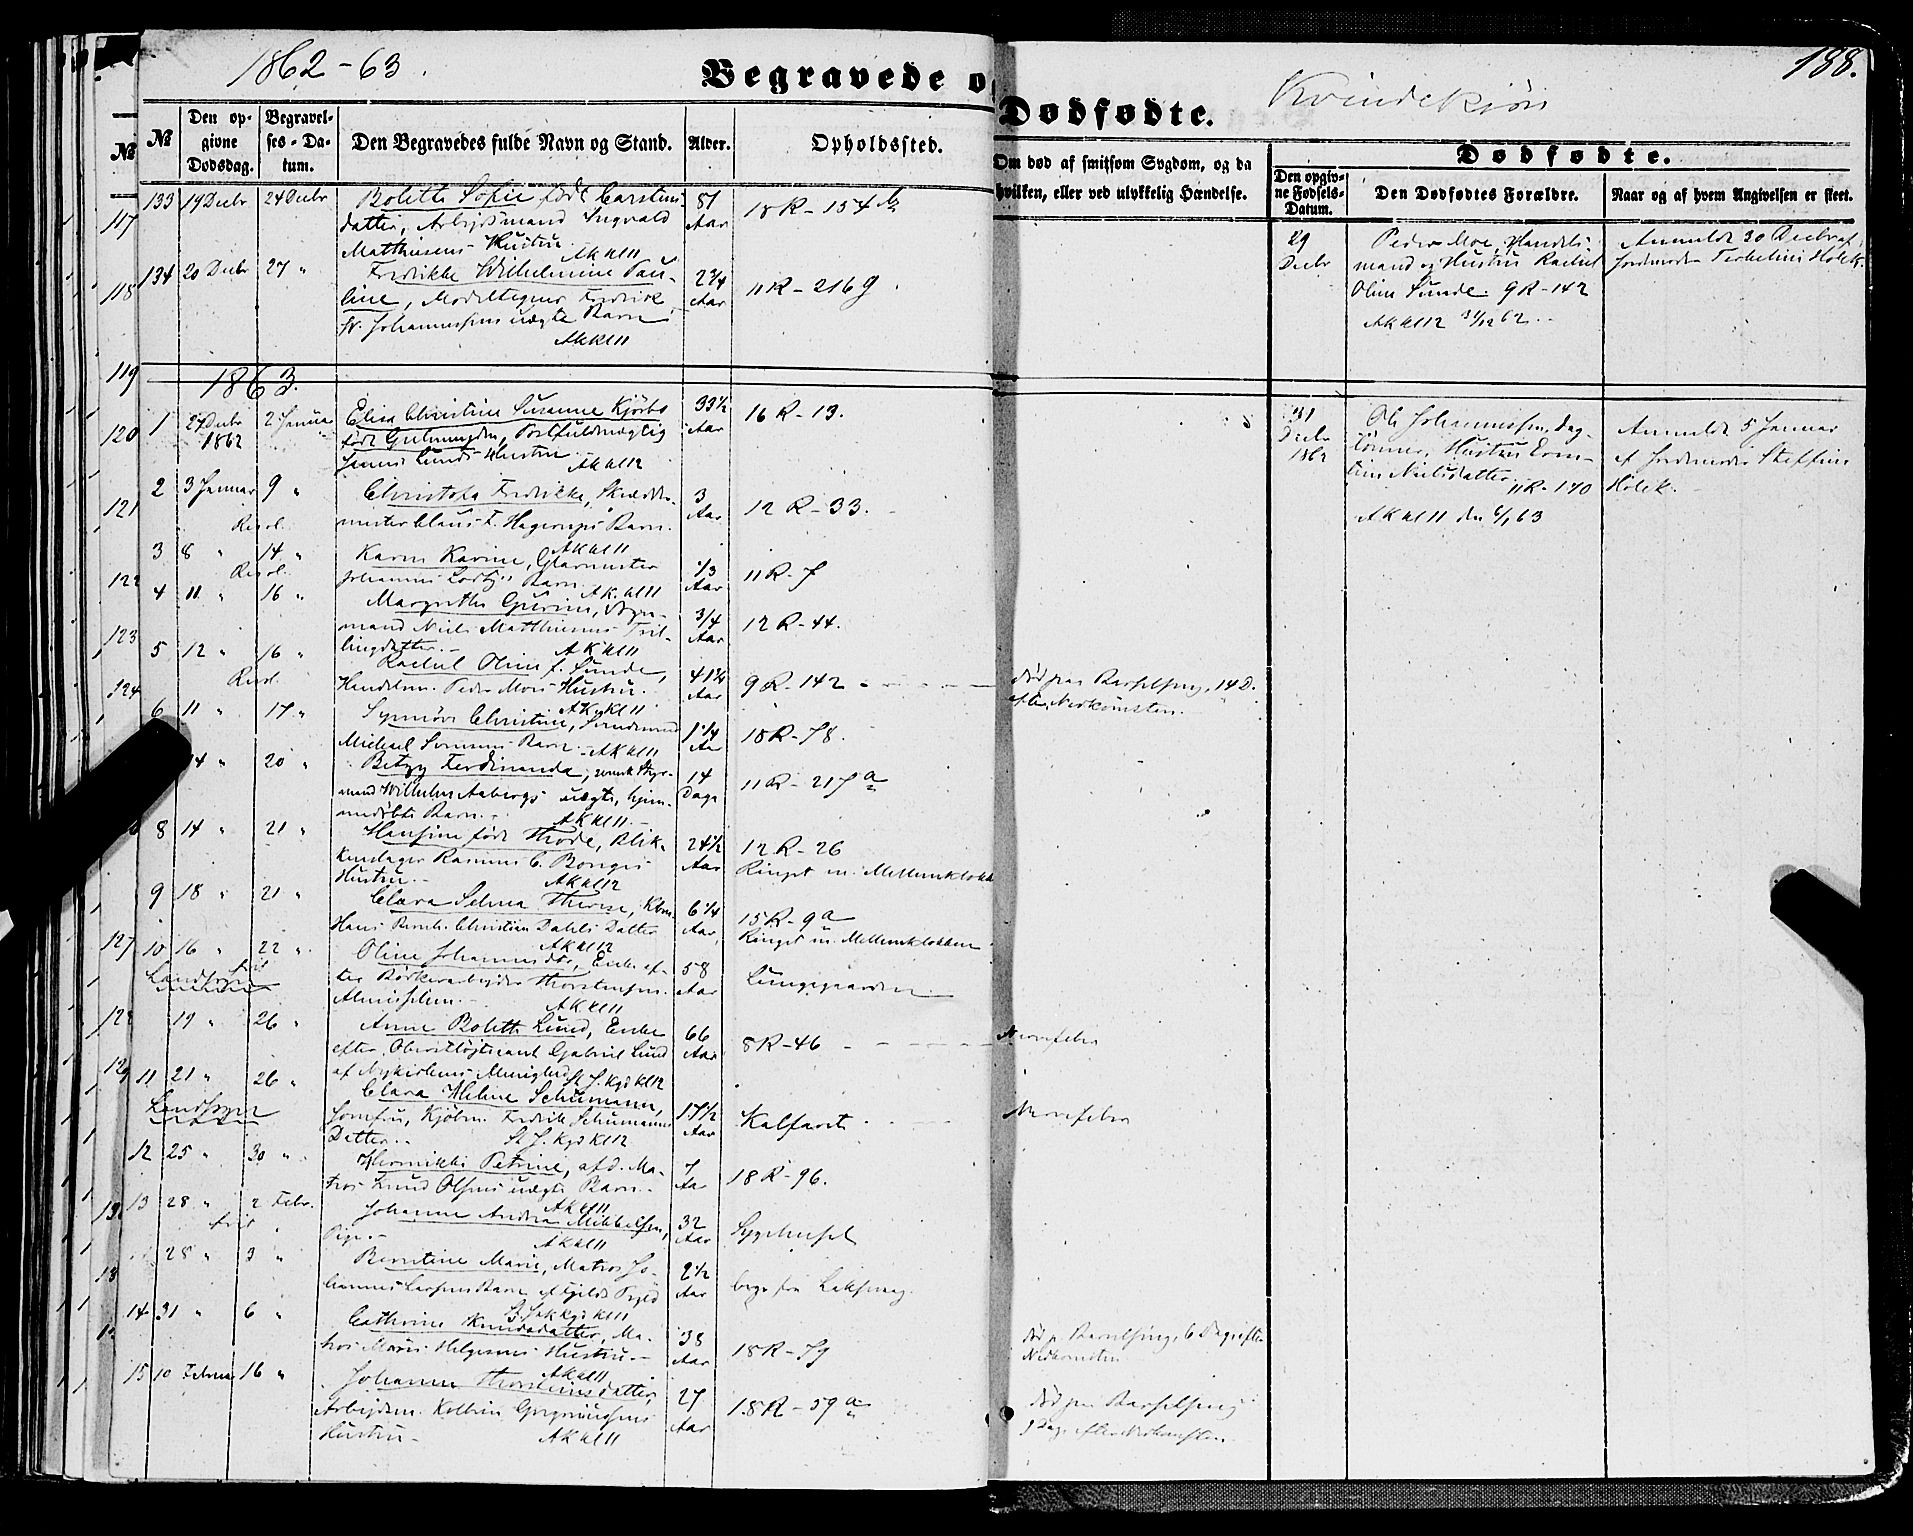 1862-63.
Begravede o
Dødfødte.
Kvindekjøn
188.
№
№
Den op-
givne
Dødsdag.
Begravel-
ses-Da-
tum.
Den Begravedes fulde Navn og Stand.
Alder.
Opholdssted.
Om død af smitsom Sygdom, og da
hvilken, eller ved ulykkelig Hændelse.
Dødfødte.
Den opgiv-
ne Fødsels-
Datum.
Den Dødfødtes Forældre.
Naar og af hvem Angivelsen er skeet.
117
118
119
120
121
122
123
124
127
128
129
133 19 Decbr 24 Decbr Bolette Sofie født Carstens-
datter, Arbejdsmand Ingvald
Matthiesens Hustru. AK kl 11
Aar
18 R-154
134 20 Decbr 27 " Fredrikke Wilhelmine Pau-
line, Fredrik
Johannessens uægte Barn
AK kl 11
2 3/4
Aar
11 R-216 g.
29
Decbr
Peder Moe, Handels-
mand og Hustru Rachel
Oline Sunde. 9 R-142
AK kl 12 31/12 62.
Anmeldt 30 Decbr af
Jordmoder Holck.
1863.
1 27 Decbr
1862
2 Januar
Elisa Christine Susanne Kjerbo
født Postfuldmægtig
Lunds Hustru AK kl 12
33 1/2
Aar
16 R-13.
31
Decbr
1862
Ole Johannessen, dag-
lønner, Hustru
Nielsdatter 11 R-170
AK kl 11 den 6/1 63
Anmeldt 5 Januar
af Jordmoder Steffine
Holck.
2 3 Januar 9 " Christofa Fredrikke, Skrædder-
mester Claus F. Hagerups Barn.
AK kl 11
3
Aar
12 R-33.
3 8 " 14 " Karen Karine, Glarmester
Johannes Barn AK kl 11
1/3
Aar
11 R-7
4 11 " 16 " Margrethe Gurine,
mand Niels Matthiesens Tvil-
lingdatter. AK kl 11
3/4
Aar
12 R-44.
5 12 " 16 " Rachel Oline f. Sunde,
Handelsm. Peder Moes Hustru.
AK kl 11
41 1/4
Aar
9 R-142
død paa Barselseng, 14 D.
efter Nedkomsten.
6 11 " 17 " Synnøve Christine,
Michael Barn AK kl 11
1 1/4
Aar
18 R-78.
14 " 20 " Betzy Ferdinanda, svensk Styr-
mand Wilhelm Aabergs uægte, hjem-
medøbte Barn. AK kl 11
14
Dage
11 R-217 a
8 14 " 21 " Hansine født Thode, Blik-
kenslager Rasmus C. Borges
Hustru. AK kl 12
24 1/2
Aar
12 R-26
Ringet m. Mellemklokk
9 18 " 21 " Clara Selma Therese, Kbm.
Hans Christian Dahls Datter
AK kl 12
6 1/4
Aar
15 R-9 a
Ringet m. Mellemklokken
10 16 " 22 " Oline Johannesdtr, Enke ef-
ter Thorstensen.
Almisselem. AK kl 11
Landsogn
58
Aar
Lungegaarden
19 " 26 " Anne Bolette Lund, Enke
efter Oberstløjtnant Gabriel Lund
af Nykirkens Menighed St. J. Kgd kl 12
66
Aar
8 R-46
Nervefeber
11 21 " 26 " Clara Heline Schumann,
Jomfru, Kjøbm. Fredrik Schumanns
Datter. St. J. Kgd kl 12
Landsogn
17 1/2
Aar
Kalfaret
Nervefeber
12 25 " 30 " Hermikke Petrine, afd. Ma-
tros Knud Olsens uægte Barn.
AK kl 11
7
Aar
18 R-96.
13 28 " 2 Febr. Johanne Andrea Mikkelsen,
Pige. AK kl 11
32
Aar
Sygehuset
28 " 3 " Berntine Marie, Matros Jo-
hannes Larsens Barn
St. Jak. Kgd kl 11
2 1/2
Aar
fra Laksevaag.
14 31 " 6 " Cathrine Knudsdatter, Ma-
tros Helgesens Hustru.
AK kl 11
38
Aar
18 R-79
død p. Barselseng, 6 Dage efter
Nedkomsten
15 10 Februar 16 " Johanne Thorsteinsdatter,
Arbejdsm.
Hustru. AK kl 11
27
Aar
18 R-59 a
død paa Barselseng
9 Dage efter Nedkomsten.